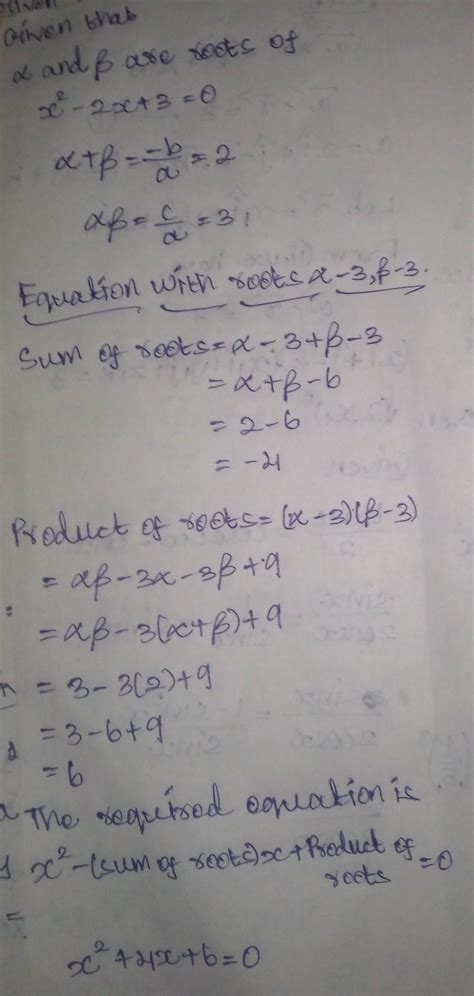 Given that
α and β are roots of
x² - 2x + 3 = 0
α + β = -b/a = 2
αβ = c/a = 3
Equation with roots α-3, β-3.
Sum of roots = α - 3 + β - 3
= α + β - 6
= 2 - 6
= -4
Product of roots = (α-3)(β-3)
= αβ - 3α - 3β + 9
= αβ - 3(α+β) + 9
= 3 - 3(2) + 9
= 3 - 6 + 9
= 6
The required equation is
x² - (sum of roots)x + Product of roots = 0
x² + 4x + 6 = 0